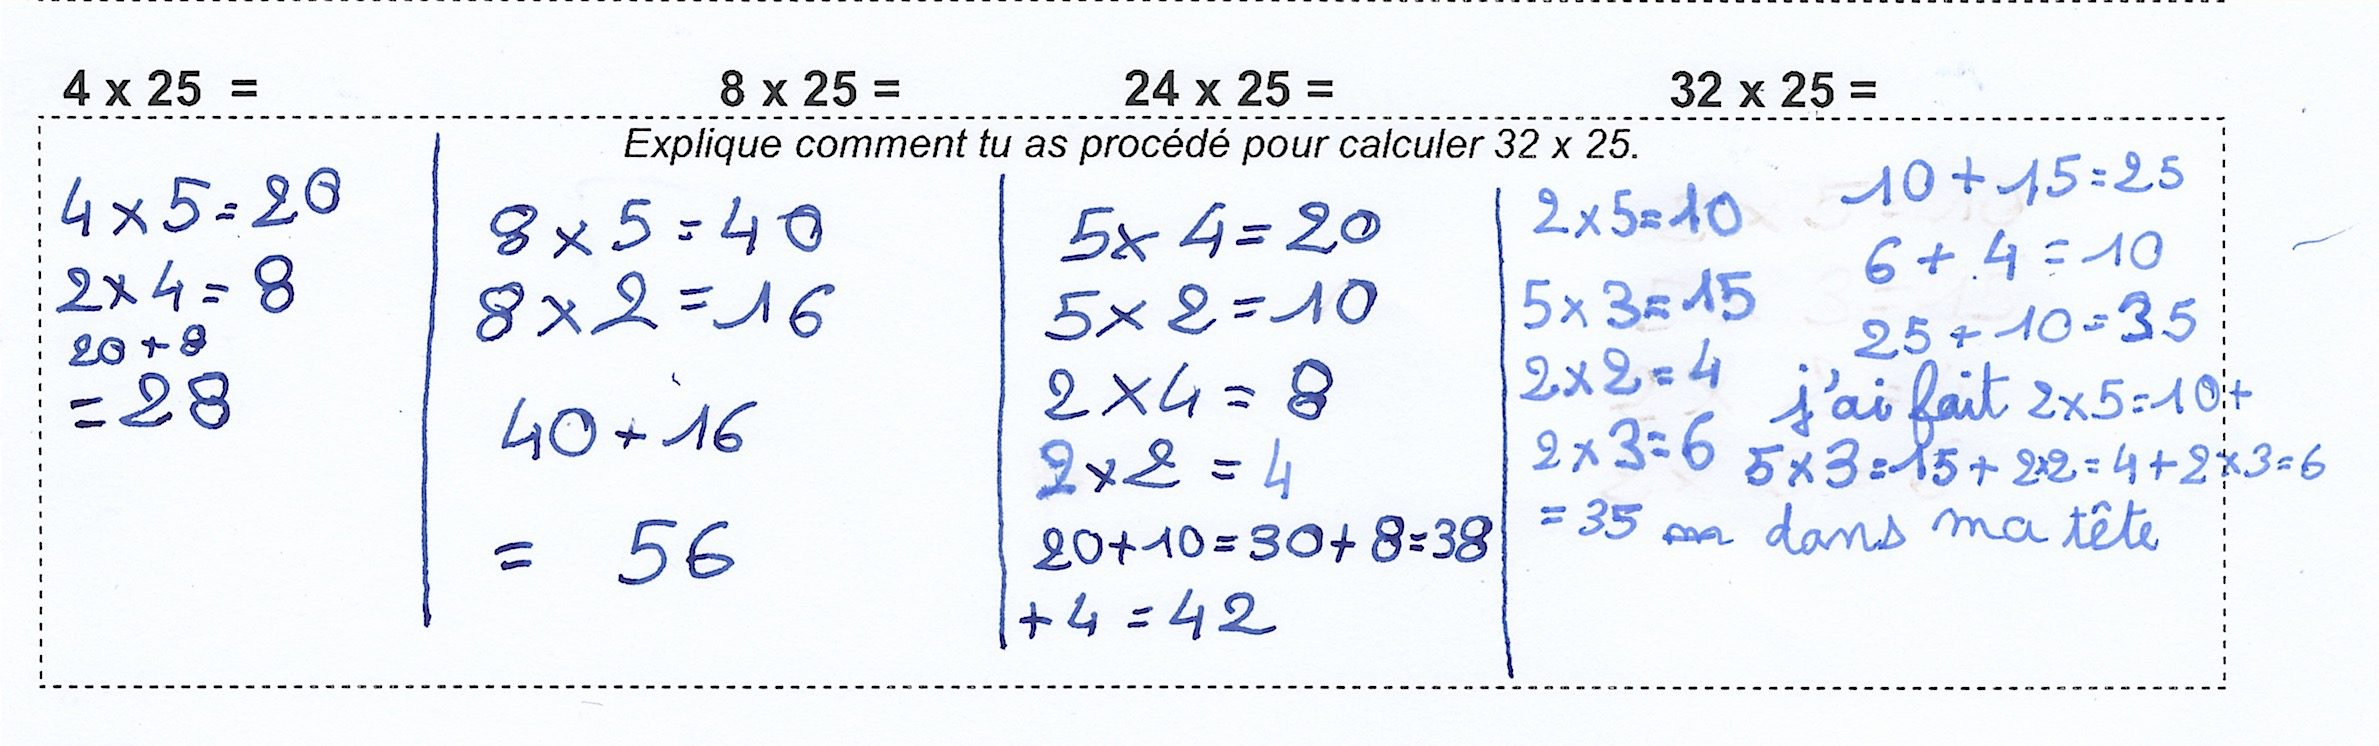 4 x 25 = 8 x 25 = 24 x 25 = 32 x 25 =
Explique comment tu as procédé pour calculer 32 x 25.
4 x 5 = 20
2 x 4 = 8
20 + 8
= 28
8 x 5 = 40
8 x 2 = 16
40 + 16
= 56
5 x 4 = 20
5 x 2 = 10
2 x 4 = 8
2 x 2 = 4
20 + 10 = 30 + 8 = 38
+ 4 = 42
2 x 5 = 10
5 x 3 = 15
2 x 2 = 4
2 x 3 = 6
10 + 15 = 25
6 + 4 = 10
25 + 10 = 35
j'ai fait 2 x 5 = 10 +
5 x 3 = 15 + 2x2 = 4 + 2 x 3 = 6
= 35 dans ma tête